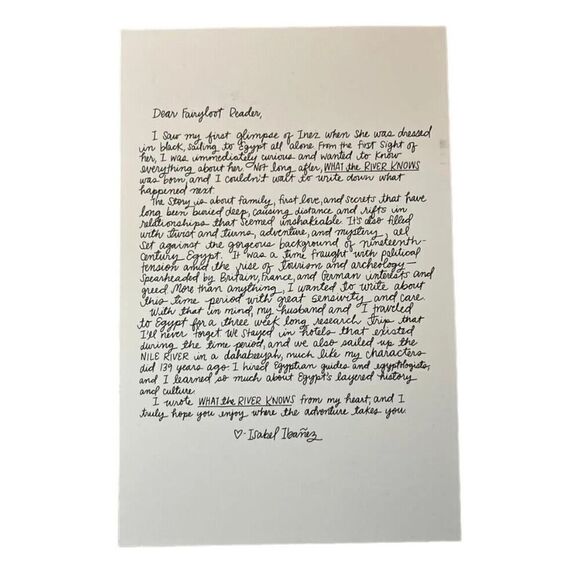 Dear Fairyloot Reader,
I saw my first glimpse of Inez when she was dressed
in black, sailing to Egypt all alone. From the first sight of
her, I was immediately curious and wanted to know
everything about her. Not long after, WHAT the RIVER KNOWS
was born, and I couldn't wait to write down what
happened next.
The story is about family, first love, and secrets that have
long been buried deep, causing distance and rifts in
relationships that seemed unshakeable. It's also filled
with twist and turns, adventure, and mystery, all
set against the gorgeous background of nineteenth-
century Egypt. It was a time fraught with political
tension amid the rise of tourism and archeology—
spearheaded by Britain, France, and German interests and
greed. More than anything, I wanted to write about
this time period with great sensivity and care.
With that in mind, my husband and I traveled
to Egypt for a three week long research trip that
I'll never forget. We stayed in hotels that existed
during the time period, and we also sailed up the
NILE RIVER in a dahabeeyah, much like my characters
did 139 years ago. I hired Egyptian guides and egyptologists,
and I learned so much about Egypt's layered history
and culture.
I wrote WHAT the RIVER KNOWS from my heart, and I
truly hope you enjoy where the adventure takes you.
♡- Isabel Ibañez